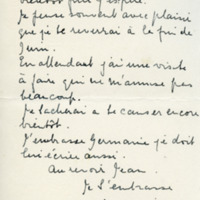 bientôt plus j'espère.
Je pense souvent avec plaisir
que je te reverrai à la fin de
Juin.
En attendant j'ai une visite
à faire qui ne m'amuse pas
beaucoup.
Je tacherai de te causer encore
bientôt.
J'embrasse Germaine je dois
lui écrire aussi.
Au revoir Jean
Je t'embrasse